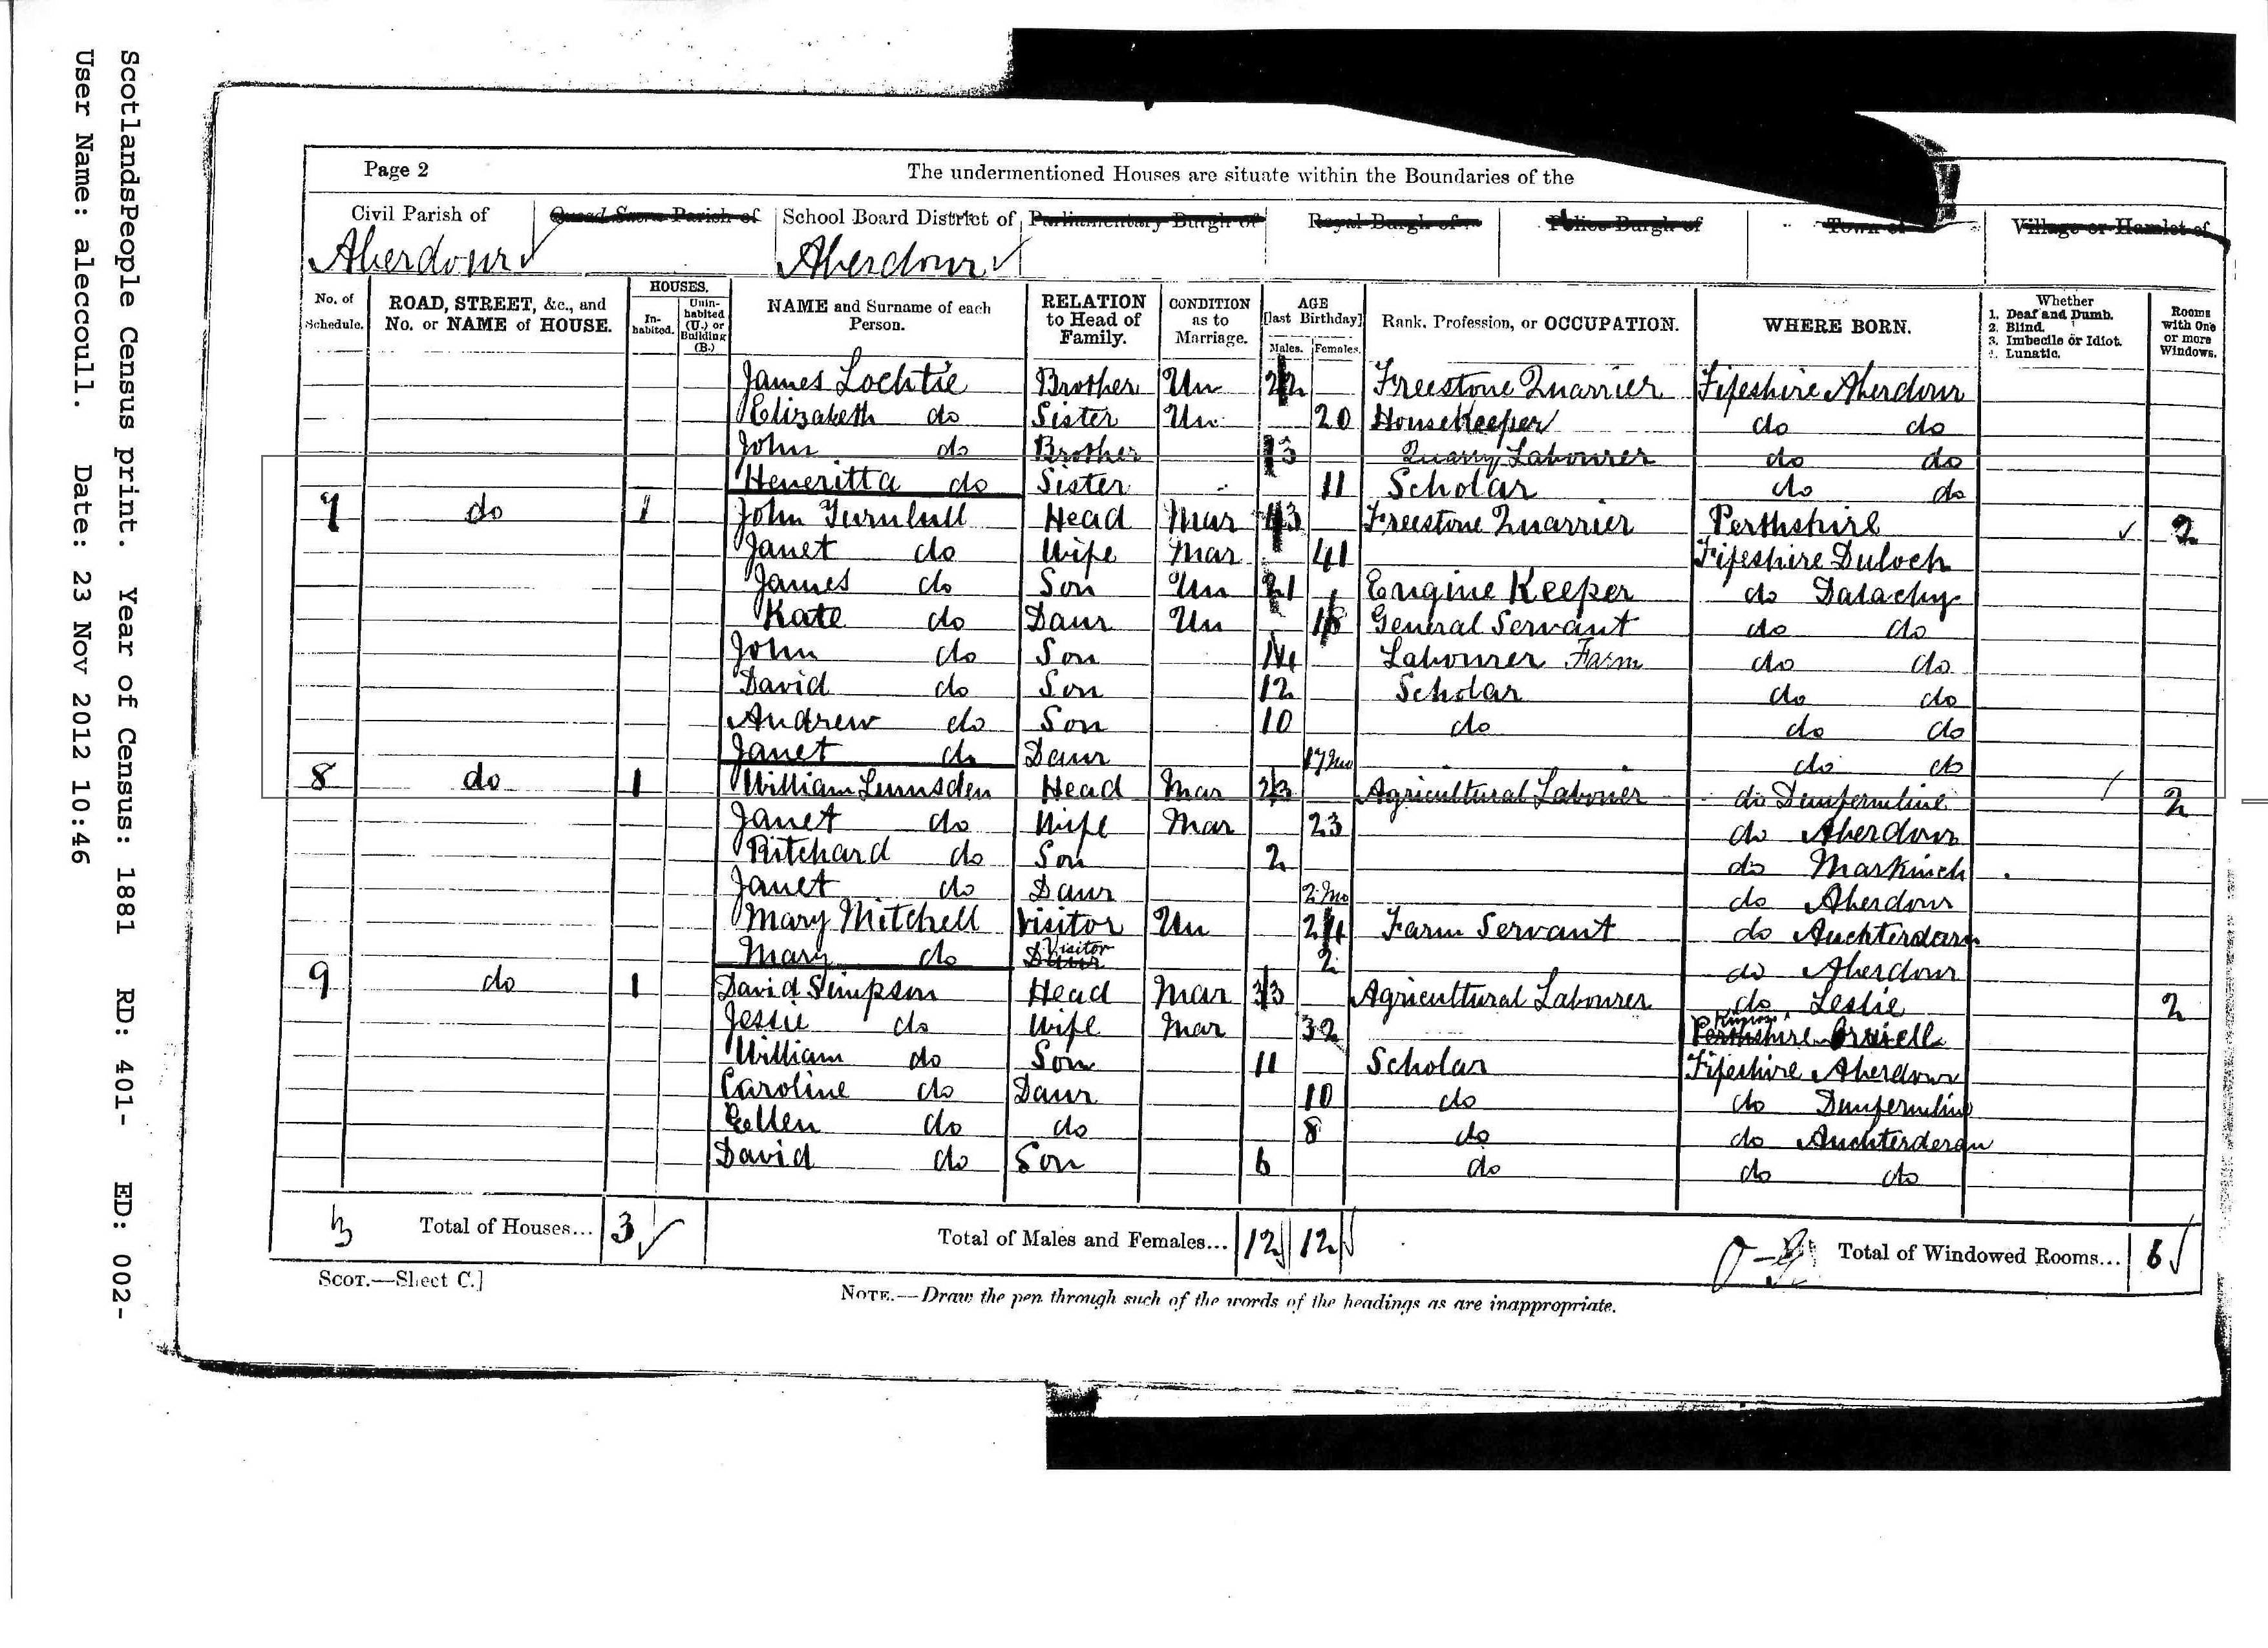 ScotlandsPeople Census print. Year of Census: 1881 RD: 401- ED: 002-
User Name: aleccoull. Date: 23 Nov 2012 10:46
Page 2 The undermentioned Houses are situate within the Boundaries of the
Civil Parish of Quoad Sacra Parish of School Board District of Parliamentary Burgh of Royal Burgh of Police Burgh of Town of Village or Hamlet of
Aberdour Aberdour
No. of Schedule. ROAD, STREET, &c., and No. or NAME of HOUSE. HOUSES. In-habited. Unin-habited (U.) or Building (B.) NAME and Surname of each Person. RELATION to Head of Family. CONDITION as to Marriage. AGE [last Birthday] Males. Females. Rank, Profession, or OCCUPATION. WHERE BORN. Whether 1. Deaf and Dumb. 2. Blind. 3. Imbecile or Idiot. 4. Lunatic. Rooms with One or more Windows.
James Lochtie Brother Un 22 Freestone Quarrier Fifeshire Aberdour
Elizabeth do Sister Un 20 Housekeeper do do
John do Brother 13 Quarry Labourer do do
Heneritta do Sister 11 Scholar do do
7 do 1 John Turnbull Head Mar 43 Freestone Quarrier Perthshire 2
Janet do Wife Mar 41 Fifeshire Duloch
James do Son Un 21 Engine Keeper do Dalachy
Kate do Daur Un 18 General Servant do do
John do Son 14 Labourer Farm do do
David do Son 12 Scholar do do
Andrew do Son 10 do do do
Janet do Daur 17 mo do do
8 do 1 William Lumsden Head Mar 23 Agricultural Labourer do Dunfermline 2
Janet do Wife Mar 23 do Aberdour
Ritchard do Son 2 do Markinch
Janet do Daur 2 mo do Aberdour
Mary Mitchell Visitor Un 24 Farm Servant do Auchterderan
Mary do Daur Visitor 2 do Aberdour
9 do 1 David Simpson Head Mar 33 Agricultural Labourer do Leslie 2
Jessie do Wife Mar 32 Perthshire Kinross Orwell
William do Son 11 Scholar Fifeshire Aberdour
Caroline do Daur 10 do do Dunfermline
Ellen do do 8 do do Auchterderan
David do Son 6 do do do
3 Total of Houses... 3 Total of Males and Females... 12 12 Total of Windowed Rooms... 6
SCOT.—Sheet C.]
NOTE.—Draw the pen through such of the words of the headings as are inappropriate.